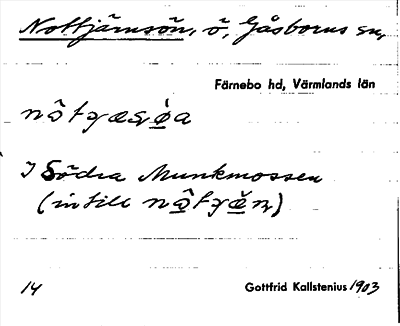 Nottjärnsön, ö, Gåsborns sn,
Färnebo hd, Värmlands län
I Södra Munkmossen
(intill
14 Gottfrid Kallstenius 1903